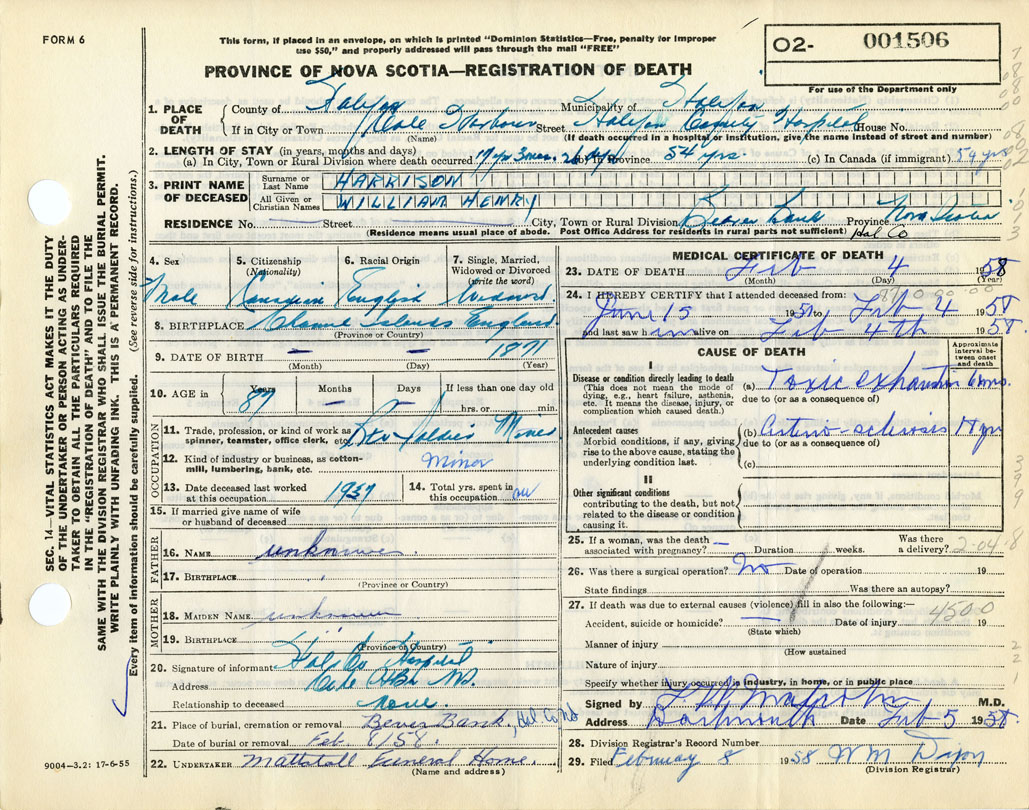 FORM 6
This form, if placed in an envelope, on which is printed "Dominion Statistics—Free, penalty for improper
use $50," and properly addressed will pass through the mail "FREE"
O2- 001506
For use of the Department only
PROVINCE OF NOVA SCOTIA—REGISTRATION OF DEATH
1. PLACE OF DEATH
County of Halifax Municipality of Halifax
If in City or Town Cole Harbour Street Halifax County Hospital House No.
(Name) (If death occurred in a hospital or institution, give the name instead of street and number)
2. LENGTH OF STAY (in years, months and days)
(a) In City, Town or Rural Division where death occurred (b) in Province 54 yrs (c) In Canada (if immigrant) 54 yrs
3. PRINT NAME OF DECEASED
Surname or Last Name HARRISON
All Given or Christian Names WILLIAM HENRY
RESIDENCE No. Street City, Town or Rural Division Beaver Bank Province Nova Scotia
(Residence means usual place of abode. Post Office Address for residents in rural parts not sufficient) Hal Co
4. Sex Male
5. Citizenship (Nationality) Canadian
6. Racial Origin English
7. Single, Married, Widowed or Divorced (write the word) Widowed
8. BIRTHPLACE Islands England
(Province or Country)
9. DATE OF BIRTH — — 1871
(Month) (Day) (Year)
10. AGE in Years 87 Months – Days – If less than one day old
hrs. or min.
OCCUPATION
11. Trade, profession, or kind of work as
spinner, teamster, office clerk, etc.
12. Kind of industry or business, as cotton-
mill, lumbering, bank, etc. Minor
13. Date deceased last worked
at this occupation 1937
14. Total yrs. spent in
this occupation
15. If married give name of wife
or husband of deceased
FATHER
16. NAME unknown
17. BIRTHPLACE
(Province or Country)
MOTHER
18. MAIDEN NAME unknown
19. BIRTHPLACE
(Province or Country)
20. Signature of informant Hal. Co. Hospital
Address Cole Hbr N.S.
Relationship to deceased none.
21. Place of burial, cremation or removal Bever Bank, Hal Co NS
Date of burial or removal Feb 8/58.
22. UNDERTAKER Mattatall Funeral Home.
(Name and address)
MEDICAL CERTIFICATE OF DEATH
23. DATE OF DEATH Feb 4 1958
(Month) (Day) (Year)
24. I HEREBY CERTIFY that I attended deceased from:
June 15 1951 to Feb 4 1958
and last saw him alive on Feb 4th 1958.
CAUSE OF DEATH
Approximate interval between onset and death
I
Disease or condition directly leading to death
(This does not mean the mode of
dying, e.g., heart failure, asthenia,
etc. It means the disease, injury, or
complication which caused death.)
(a) Toxic exhaustion 6 mo.
due to (or as a consequence of)
Antecedent causes
Morbid conditions, if any, giving
rise to the above cause, stating the
underlying condition last.
(b) Arterio-sclerosis
due to (or as a consequence of)
(c)
II
Other significant conditions
contributing to the death, but not
related to the disease or condition
causing it.
25. If a woman, was the death
associated with pregnancy? — Duration weeks. Was there a delivery? 2-04-8
26. Was there a surgical operation? No Date of operation 19
State findings Was there an autopsy?
27. If death was due to external causes (violence) fill in also the following:—
Accident, suicide or homicide? Date of injury 4500 19
(State which)
Manner of injury
(How sustained
Nature of injury
Specify whether injury occurred in industry, in home, or in public place
Signed by M.D.
Address Dartmouth Date Feb 5 1958.
28. Division Registrar's Record Number
29. Filed February 8 1958 WM Dixon
(Division Registrar)
SEC. 14—VITAL STATISTICS ACT MAKES IT THE DUTY
OF THE UNDERTAKER OR PERSON ACTING AS UNDER-
TAKER TO OBTAIN ALL THE PARTICULARS REQUIRED
IN THE "REGISTRATION OF DEATH" AND TO FILE THE
SAME WITH THE DIVISION REGISTRAR WHO SHALL ISSUE THE BURIAL PERMIT.
WRITE PLAINLY WITH UNFADING INK. THIS IS A PERMANENT RECORD.
Every item of information should be carefully supplied. (See reverse side for instructions.)
9004—3.2: 17-6-55